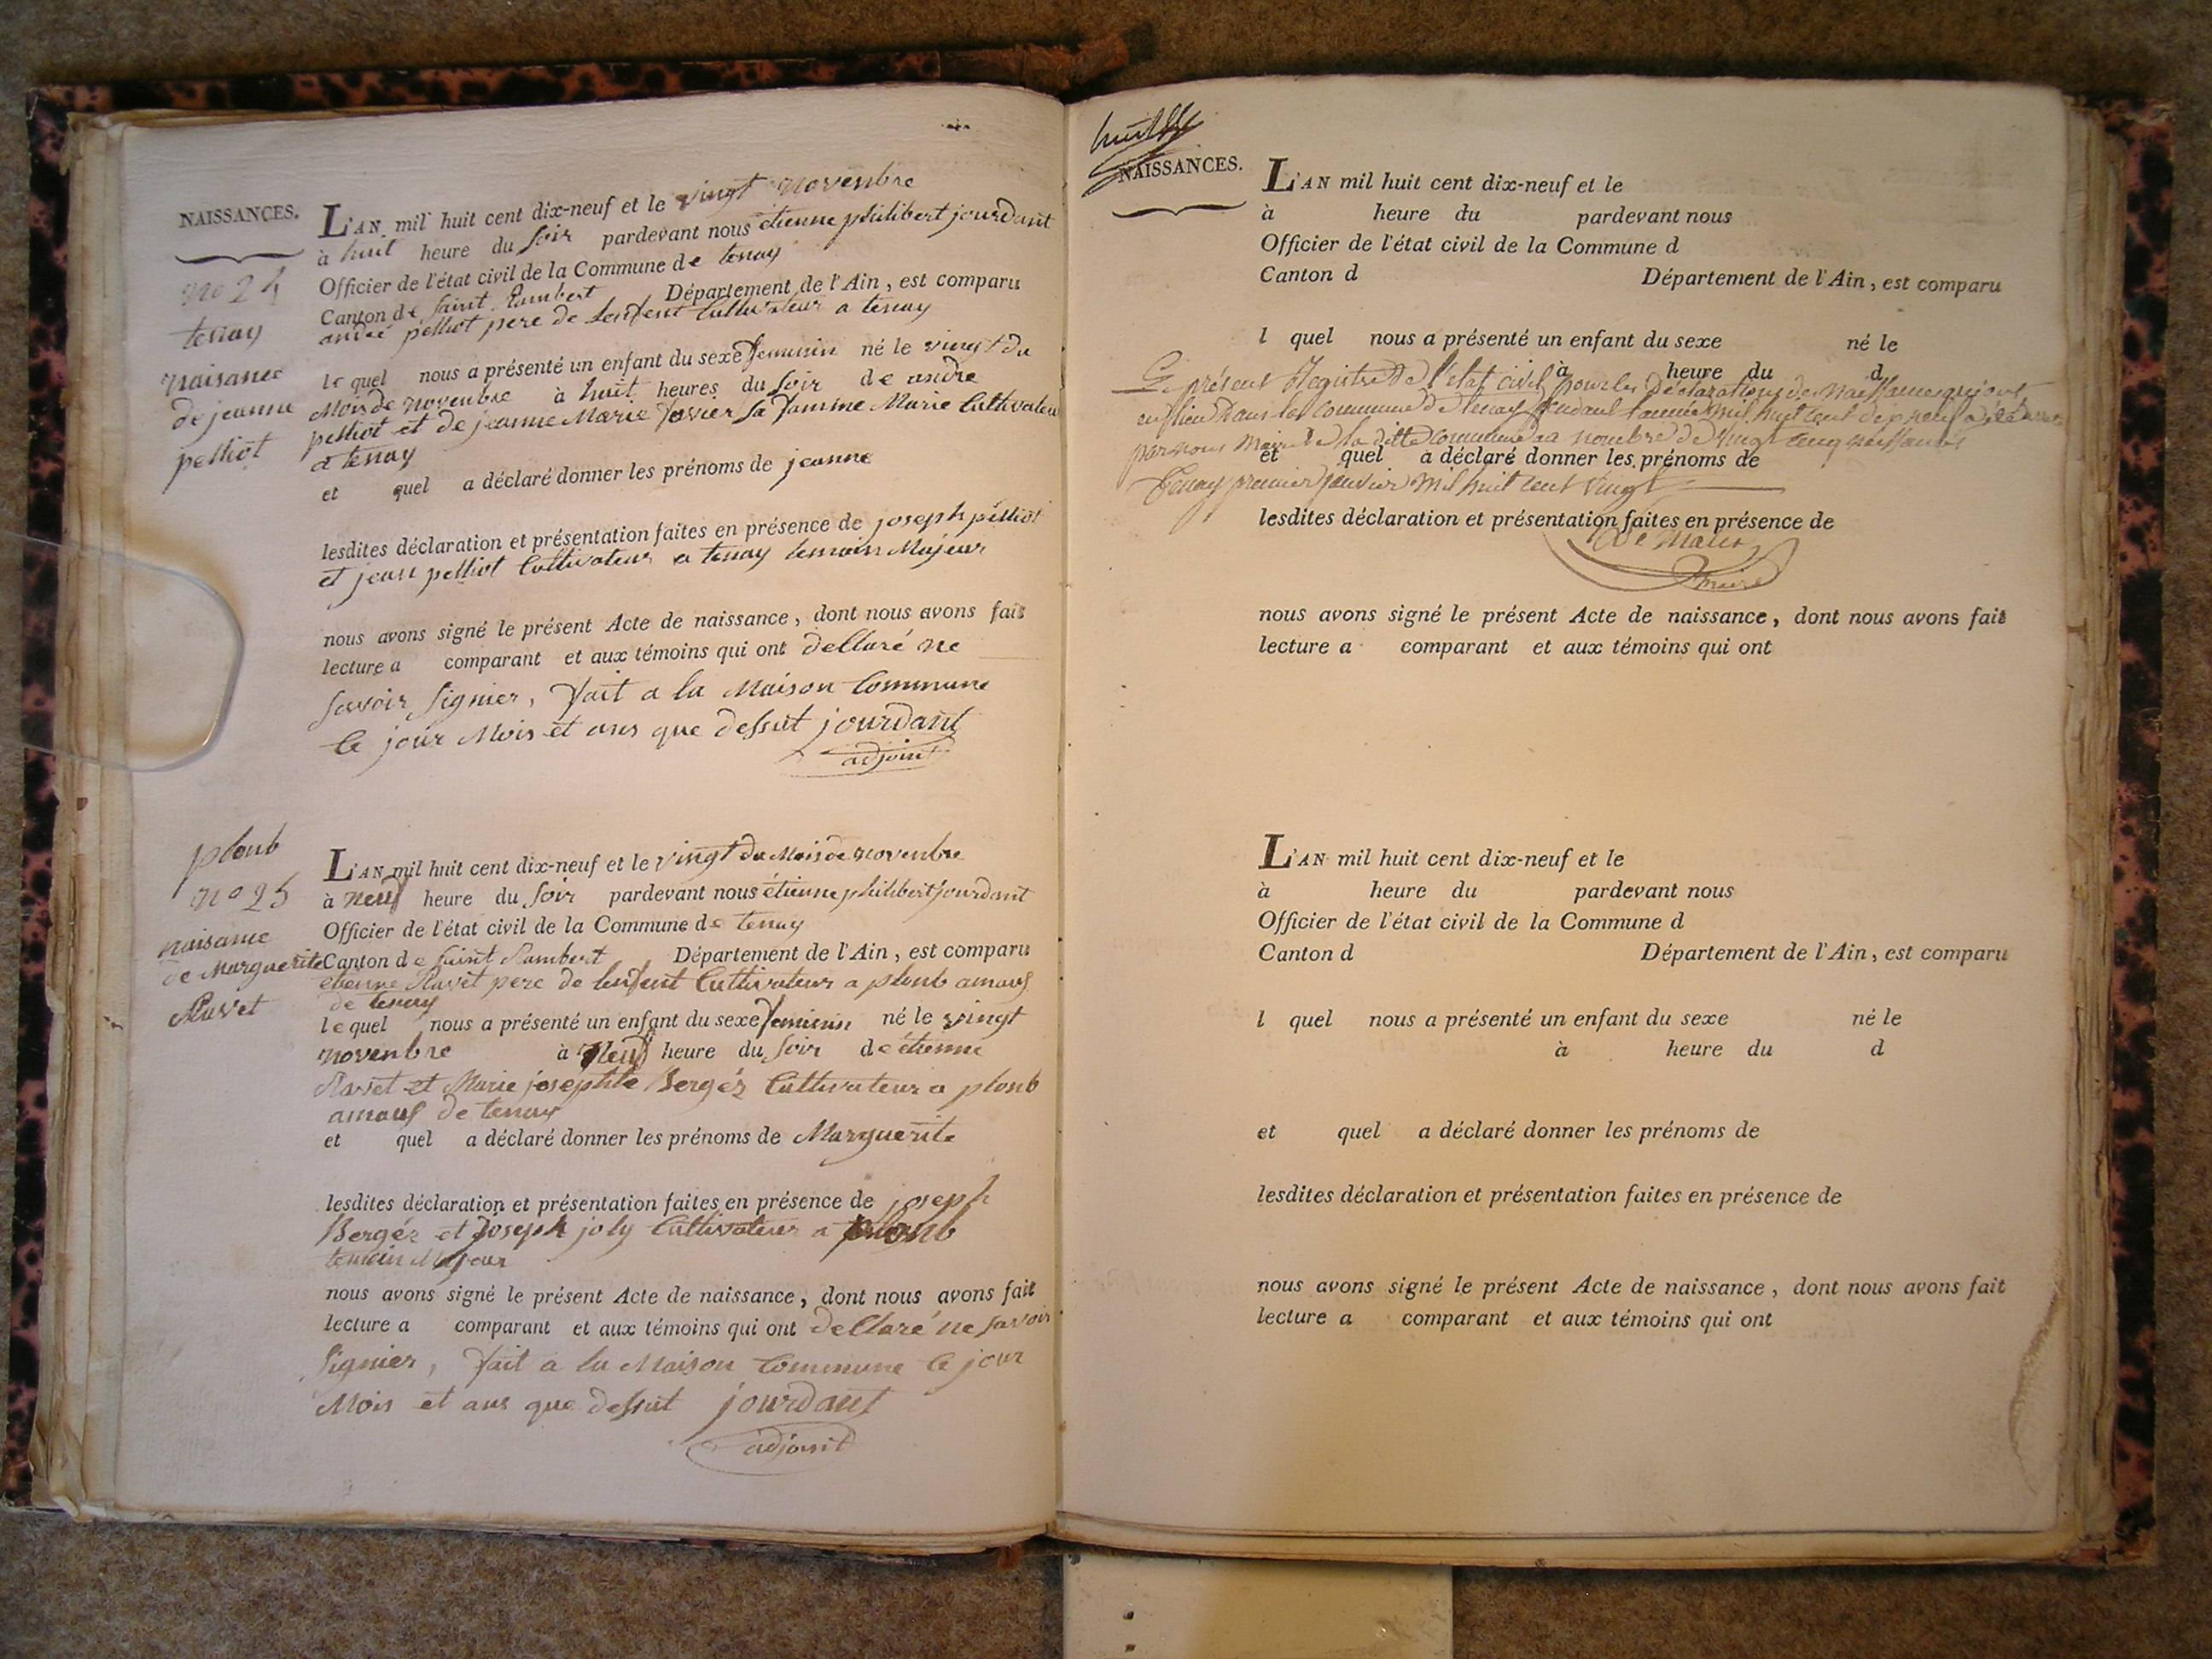 NAISSANCES.
no 24
tenay
naisance
de jeanne
pelliot
L'AN mil huit cent dix-neuf et le vingt novenbre
à huit heure du soir pardevant nous étienne philibert jourdant
Officier de l'état civil de la Commune de tenay
Canton de saint Rambert Département de l'Ain, est comparu
andré pelliot pere de lenfent Cultivateur a tenay
le quel nous a présenté un enfant du sexe feminin né le vingt du
Mois de novenbre à huit heures du soir de andre
pelliot et de jeanne Marie favier sa famme Marie Cultivateu
a tenay
et quel a déclaré donner les prénoms de jeanne
lesdites déclaration et présentation faites en présence de joseph pelliot
et jean pelliot Cultivateur a tenay temoin Majeur
nous avons signé le présent Acte de naissance, dont nous avons fait
lecture a comparant et aux témoins qui ont declaré ne
savoir signier, fait a la Maison Commune
le jour Mois et ans que dessut jourdant
adjoint
plonb
no 25
naisance
de Marguerite
Ravet
L'AN mil huit cent dix-neuf et le vingt du Mois de novenbre
à neuf heure du soir pardevant nous étienne philibert jourdant
Officier de l'état civil de la Commune de tenay
Canton de saint Rambert Département de l'Ain, est comparu
etienne Ravet pere de lenfent Cultivateur a plonb amauf
de tenay
le quel nous a présenté un enfant du sexe feminin né le vingt
novenbre à Neuf heure du soir de étienne
Ravet et Marie josephte Bergér Cultivateur a plonb
amauf de tenay
et quel a déclaré donner les prénoms de Marguerite
lesdites déclaration et présentation faites en présence de joseph
Bergér et Joseph joly Cultivateur a plonb
temoin Majeur
nous avons signé le présent Acte de naissance, dont nous avons fait
lecture a comparant et aux témoins qui ont declaré ne savoir
signier, fait a la Maison Commune le jour
Mois et ans que dessut jourdant
adjoint
huit
NAISSANCES.
L'AN mil huit cent dix-neuf et le
à heure du pardevant nous
Officier de l'état civil de la Commune d
Canton d Département de l'Ain, est comparu
l quel nous a présenté un enfant du sexe né le
à heure du d
Le présent Registre de l'état civil pour les déclarations de Naissances qui ont
eu lieu dans la commune de tenay pendant l'année mil huit cent dix neuf a été
par nous maire de la ditte commune au nombre de vingt cinq naissances
et quel a déclaré donner les prénoms de
Tenay premier janvier mil huit cent vingt
lesdites déclaration et présentation faites en présence de
maire
nous avons signé le présent Acte de naissance, dont nous avons fait
lecture a comparant et aux témoins qui ont
L'AN mil huit cent dix-neuf et le
à heure du pardevant nous
Officier de l'état civil de la Commune d
Canton d Département de l'Ain, est comparu
l quel nous a présenté un enfant du sexe né le
à heure du d
et quel a déclaré donner les prénoms de
lesdites déclaration et présentation faites en présence de
nous avons signé le présent Acte de naissance, dont nous avons fait
lecture a comparant et aux témoins qui ont